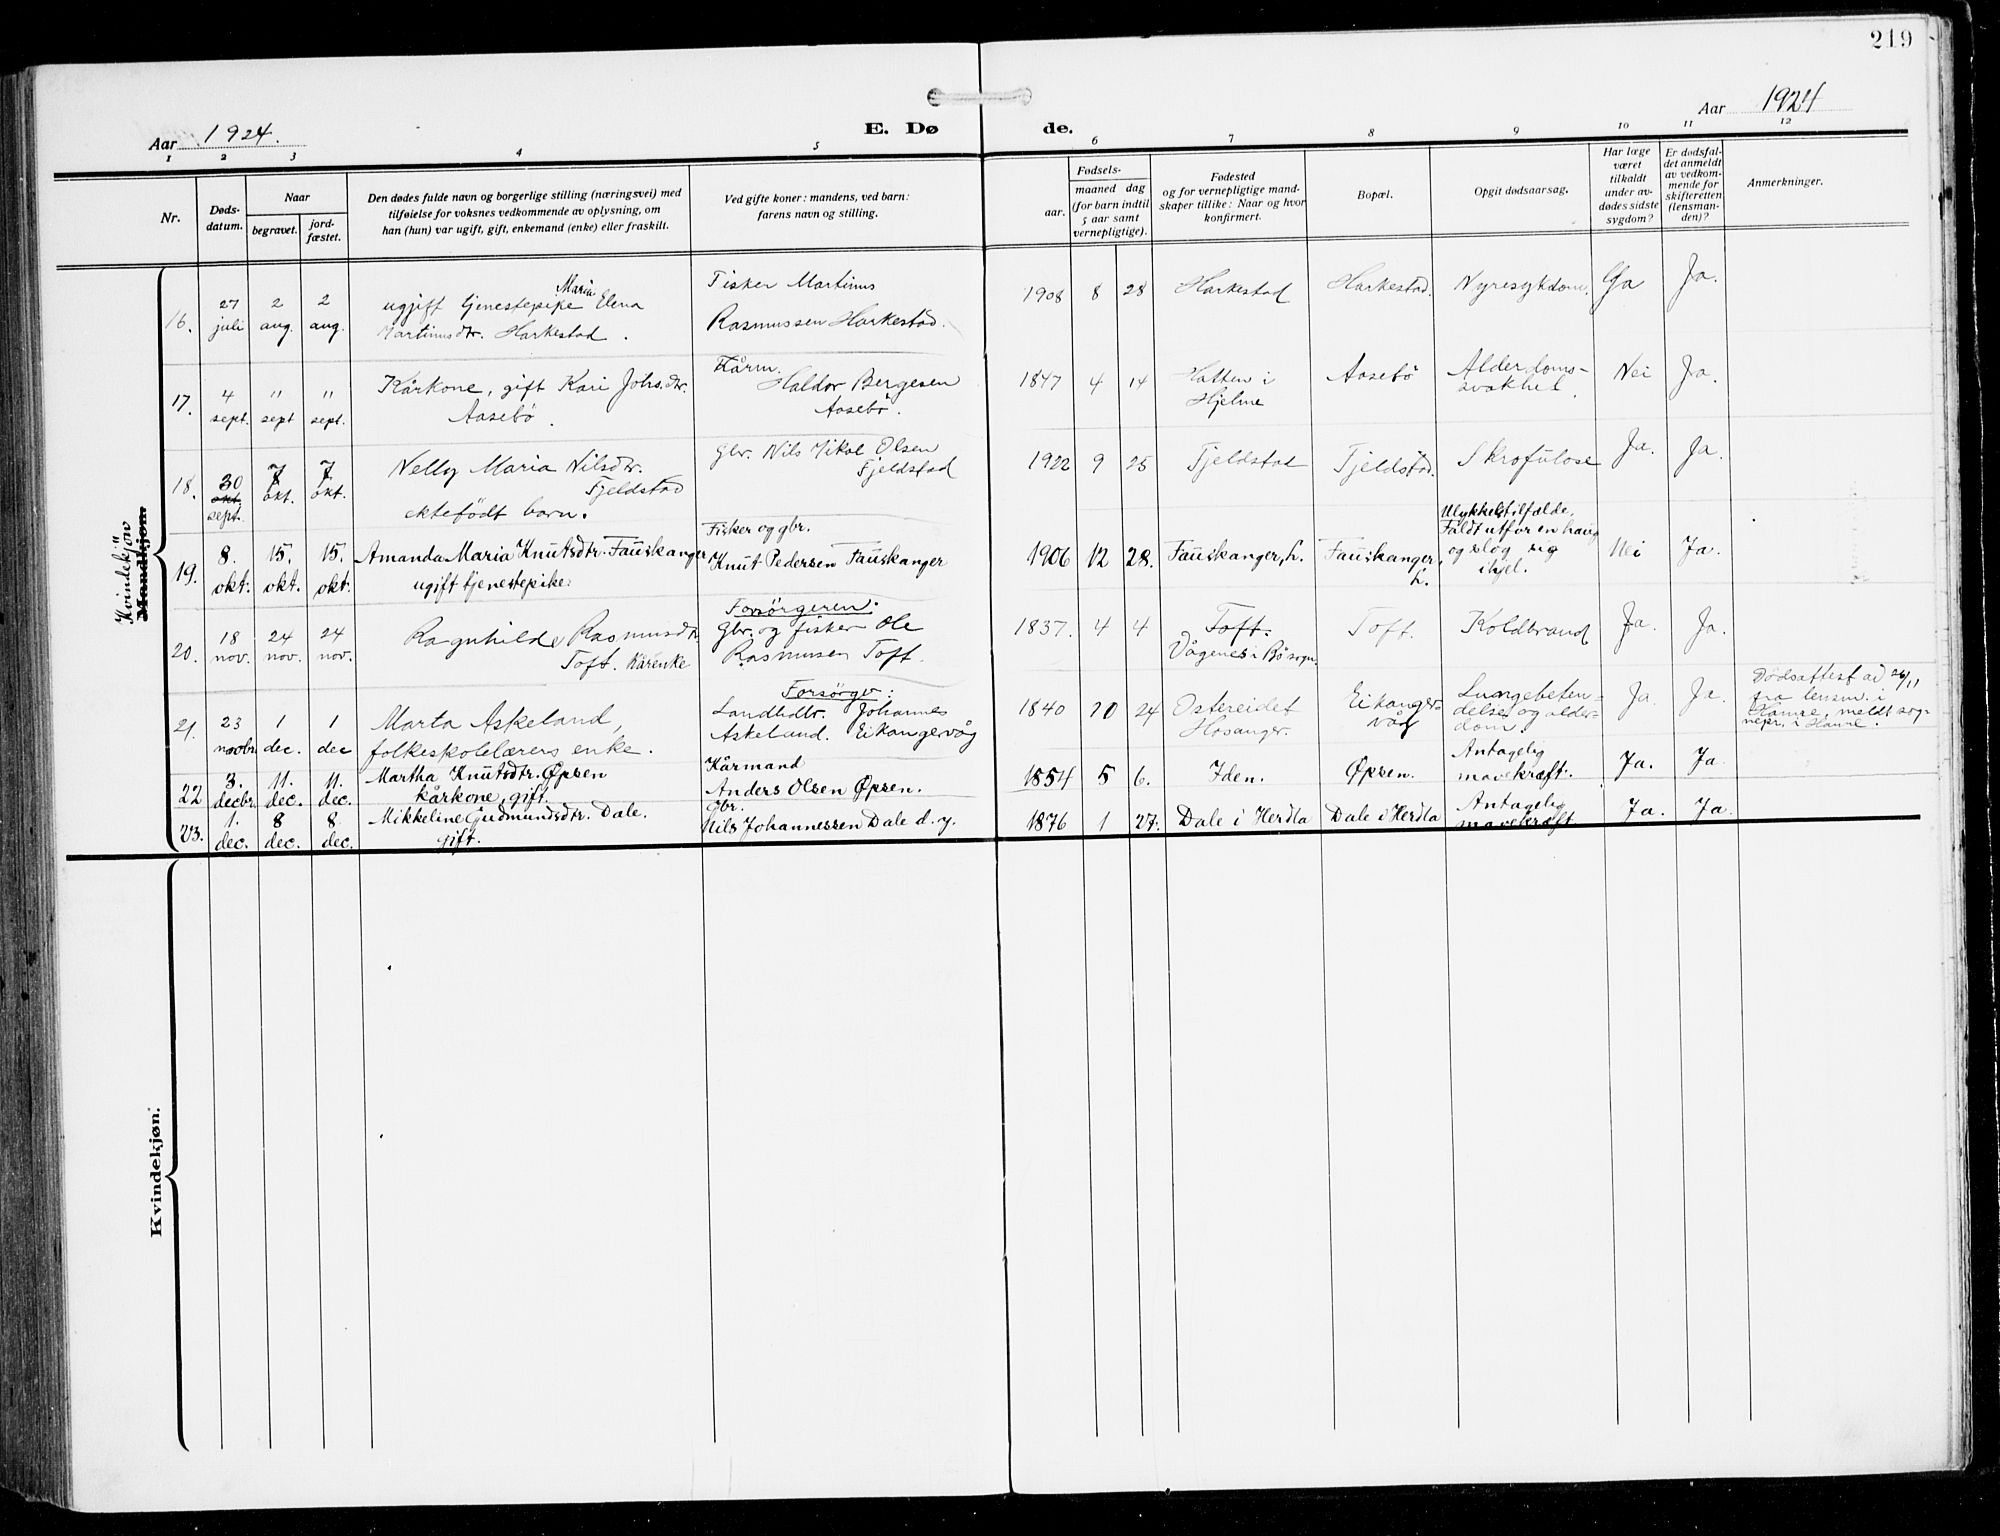 219
Aar 1924.
E. Dø de.
Aar 1924
1 2 3 4 5 6 7 8 9 10 11 12
Nr.
Døds-
datum.
Naar
begravet.
jord-
fæstet.
Den dødes fulde navn og borgerlige stilling (næringsvei) med
tilføielse for voksnes vedkommende av oplysning, om
han (hun) var ugift, gift, enkemand (enke) eller fraskilt.
Ved gifte koner: mandens, ved barn:
farens navn og stilling.
Fødsels-
aar.
maaned dag
(for barn indtil
5 aar samt
vernepligtige).
Fødested
og for vernepligtige mand-
skaper tillike: Naar og hvor
konfirmert.
Bopæl.
Opgit dødsaarsag.
Har læge
været
tilkaldt
under av-
dødes sidste
sygdom?
Er dødsfal-
det anmeldt
av vedkom-
mende for
skifteretten
(lensman-
den)?
Anmerkninger.
Kvindekjön
Mandkjøn.
16. 27 juli 2 aug. 2 aug.
ugift tjenestepike Maria Elena
Martinusdtr. Harkestad.
Fisker Martinus
Rasmussen Harkestad.
1908 8 28 Harkestad Harkestad. Nyresykdom. Ja Ja.
17. 4 sept. " sept " sept.
Kårkone, gift Kari Johs.dtr.
Aasebö.
Kårm.
Haldor Bergesen
Aasebö.
1847 4 14 Hatten i
Hjelme
Aasebö
Alderdoms-
svakhet.
Nei Ja.
18. 30 okt. sept. 7 okt. 7 okt.
Nelly Maria Nilsdtr.
Fjeldstad
ektefödt barn.
Gbr. Nils Mikal Olsen
Fjeldstad
1922 9 25 Fjeldstad Fjeldstad. Skrofulose Ja. Ja.
19. 8. okt. 15. okt. 15. okt.
Amanda Maria Knutsdtr. Fauskanger
ugift tjenestepike.
Fisker og gbr.
Knut Pedersen Fauskanger
1906 12 28. Fauskanger, h. Fauskanger,
h.
Ulykkelstilfælde,
Faldt utfor en haug
og slog sig
ihjel.
Nei Ja.
20. 18 nov. 24 nov. 24 nov.
Ragnhilde Rasmusdtr.
Toft. Kårenke
Forsörgeren:
Gbr. og fisker Ole
Rasmussen Toft.
1837. 4 4 Toft.
Vågenes i Bö sogn.
Toft. Koldbrand Ja. Ja.
21. 23 novbr. 1 dec. 1 dec
Marta Askeland,
folkeskolelærers enke.
Forsörger:
Landhdlr. Johannes
Askeland. Eikangervåg
1840 10 24 Ostereidet
Hosanger.
Eikanger-
våg
Lungebeten-
delse og alder-
dom.
Ja Ja.
Dödsattest av 26/11
fra lensm. i
Hamre, meldt sog-
nepr. i Hamre.
22 3. decbr. 11. dec. 11. dec.
Martha Knutsdtr. Øpsen
kårkone, gift.
Kårmand
Anders Olsen Øpsen.
1854 5 6. Iden. Øpsen.
Antagelig
mavekræft.
Ja. Ja
23. 1. dec. 8 dec. 8. dec.
Mikkeline Gudmundsdtr. Dale.
gift.
Gbr.
Nils Johannessen Dale d. y.
1876 1 27. Dale i Herdla Dale i Herdla
Antagelig
mavekræft
Ja. Ja.
Kvindekjøn.